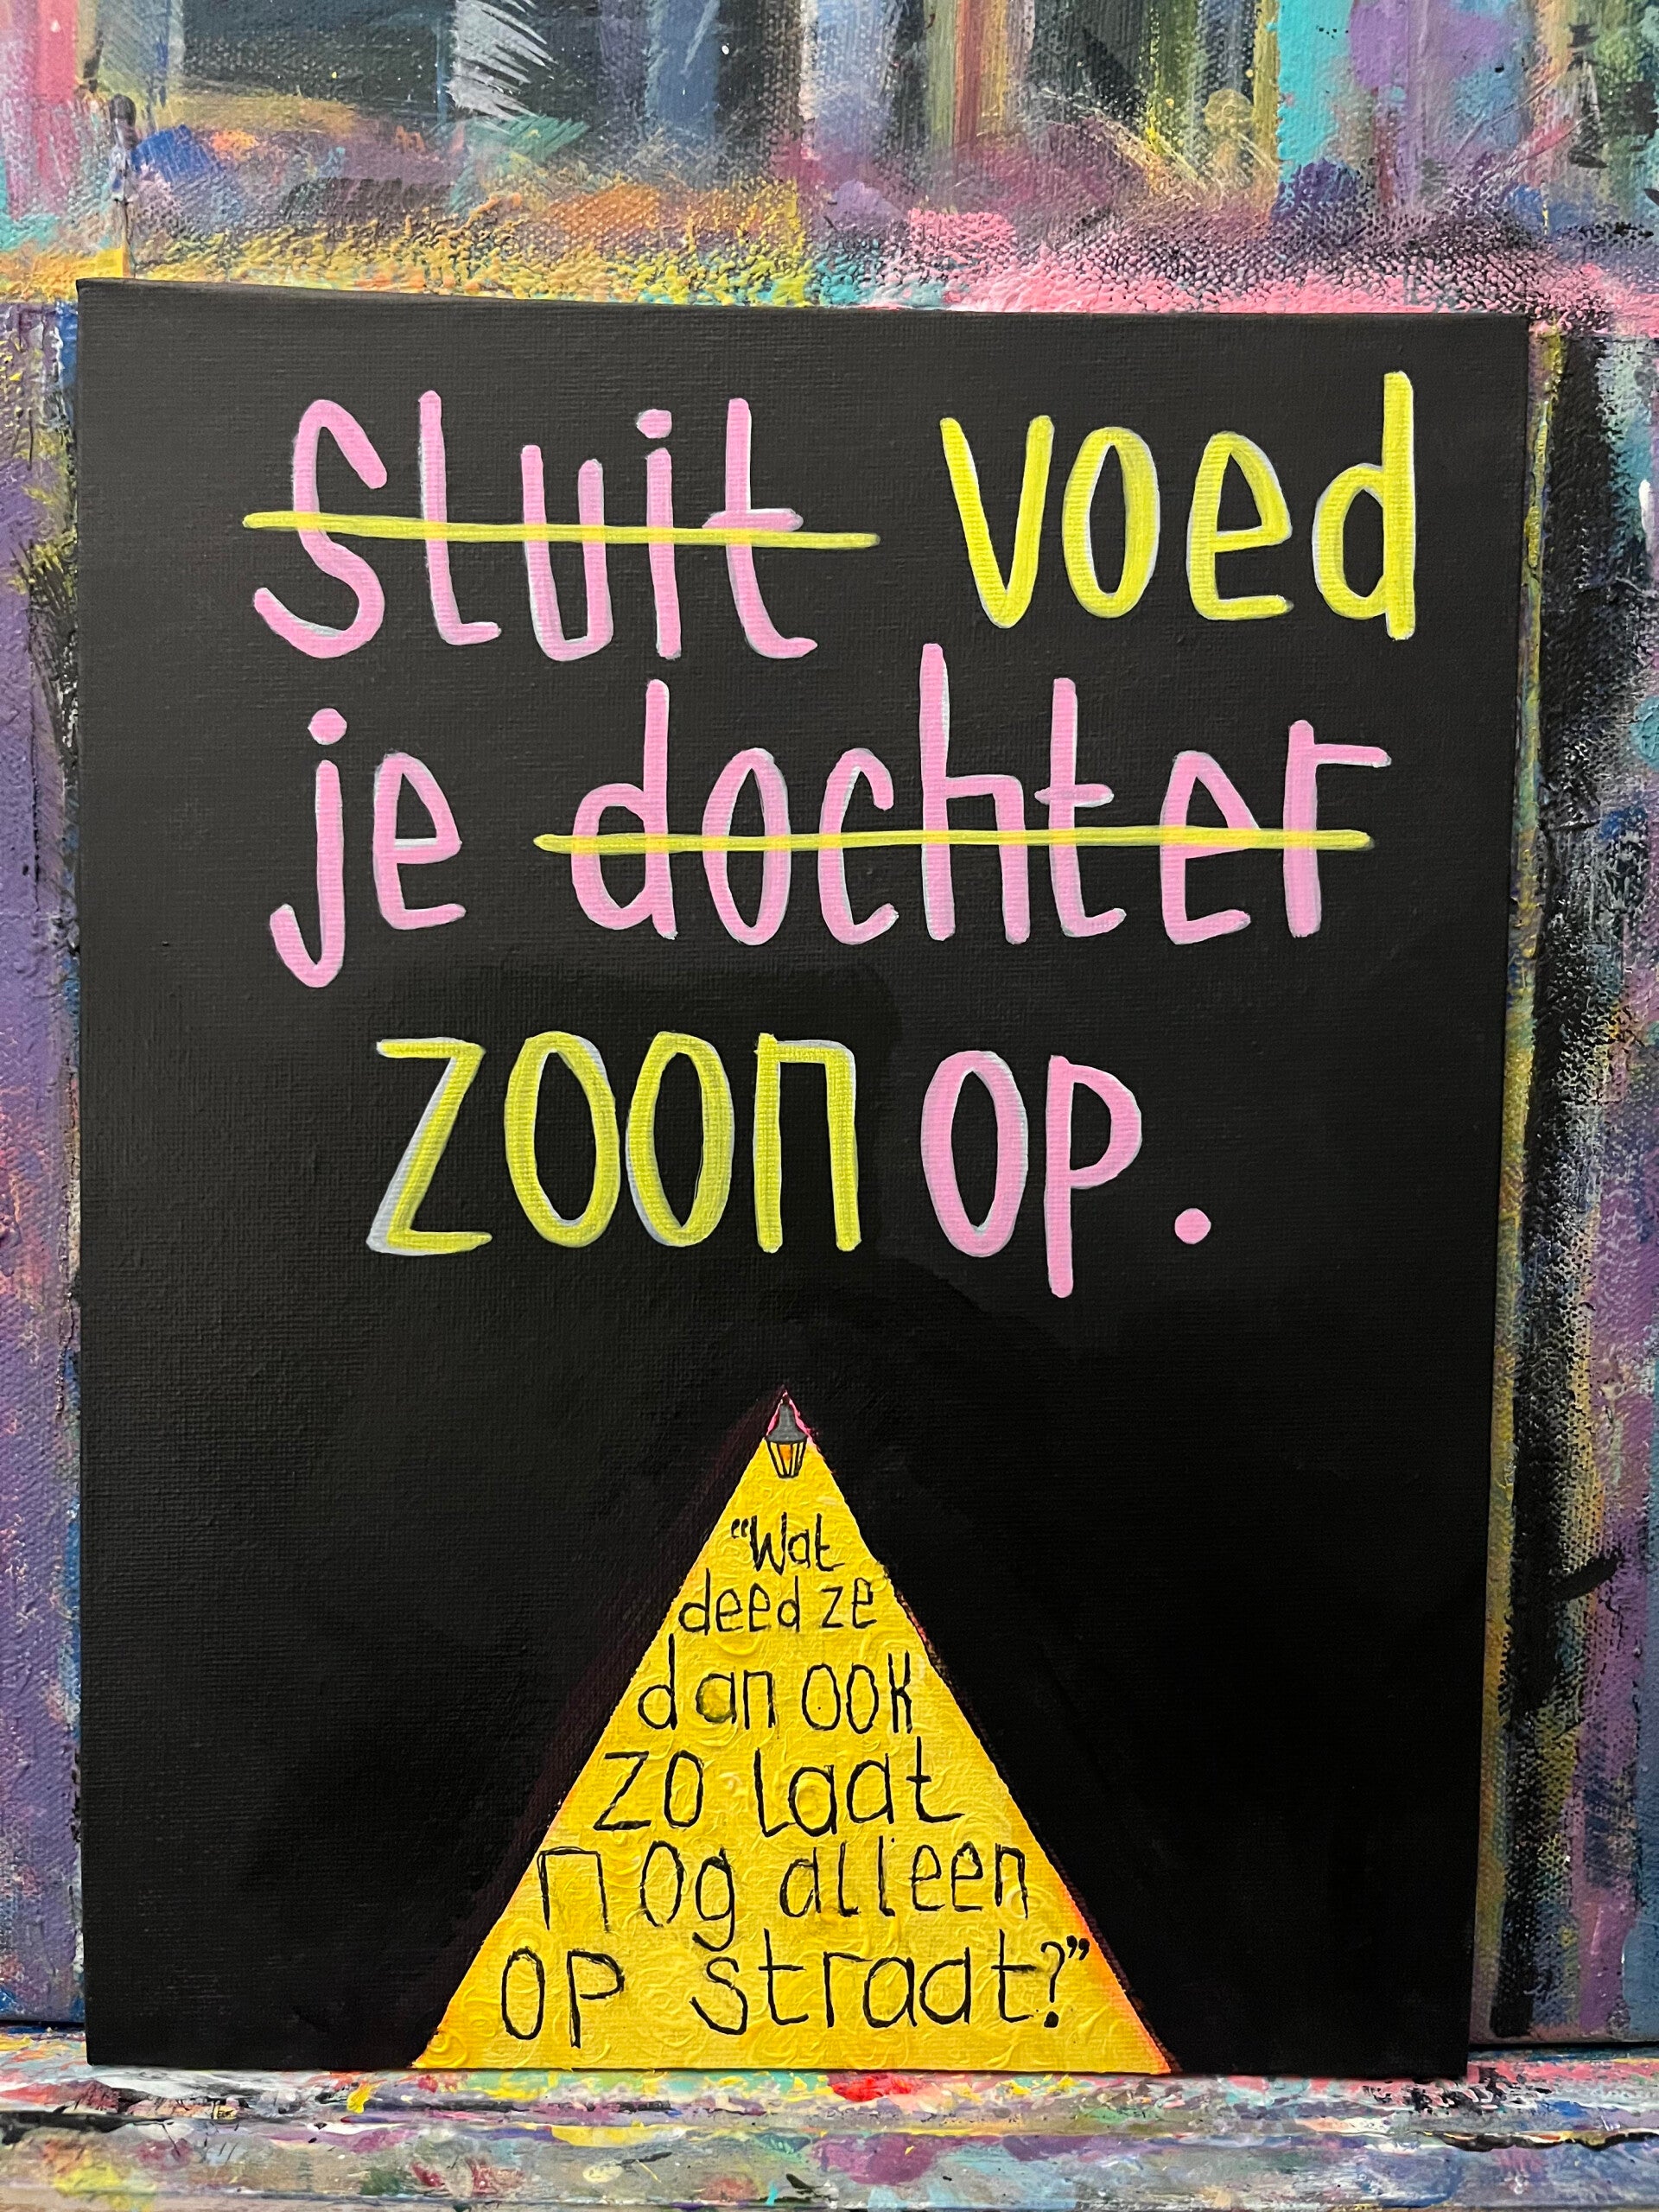 sluit voed
je dochter
zoon op.
"Wat
deed ze
dan ook
zo laat
nog alleen
op straat?"